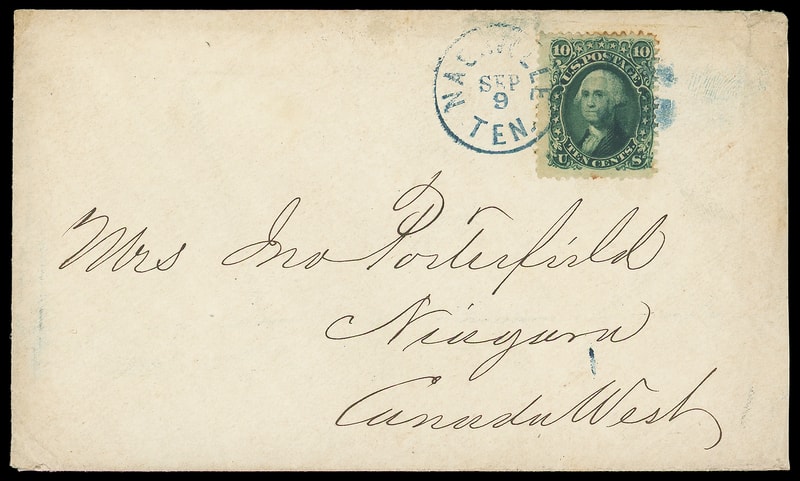 NASHVILLE
SEP
9
TEN.
10 10
U.S. POSTAGE
TEN CENTS.
U S
Mrs Jno Porterfield
Niagara
Canada West